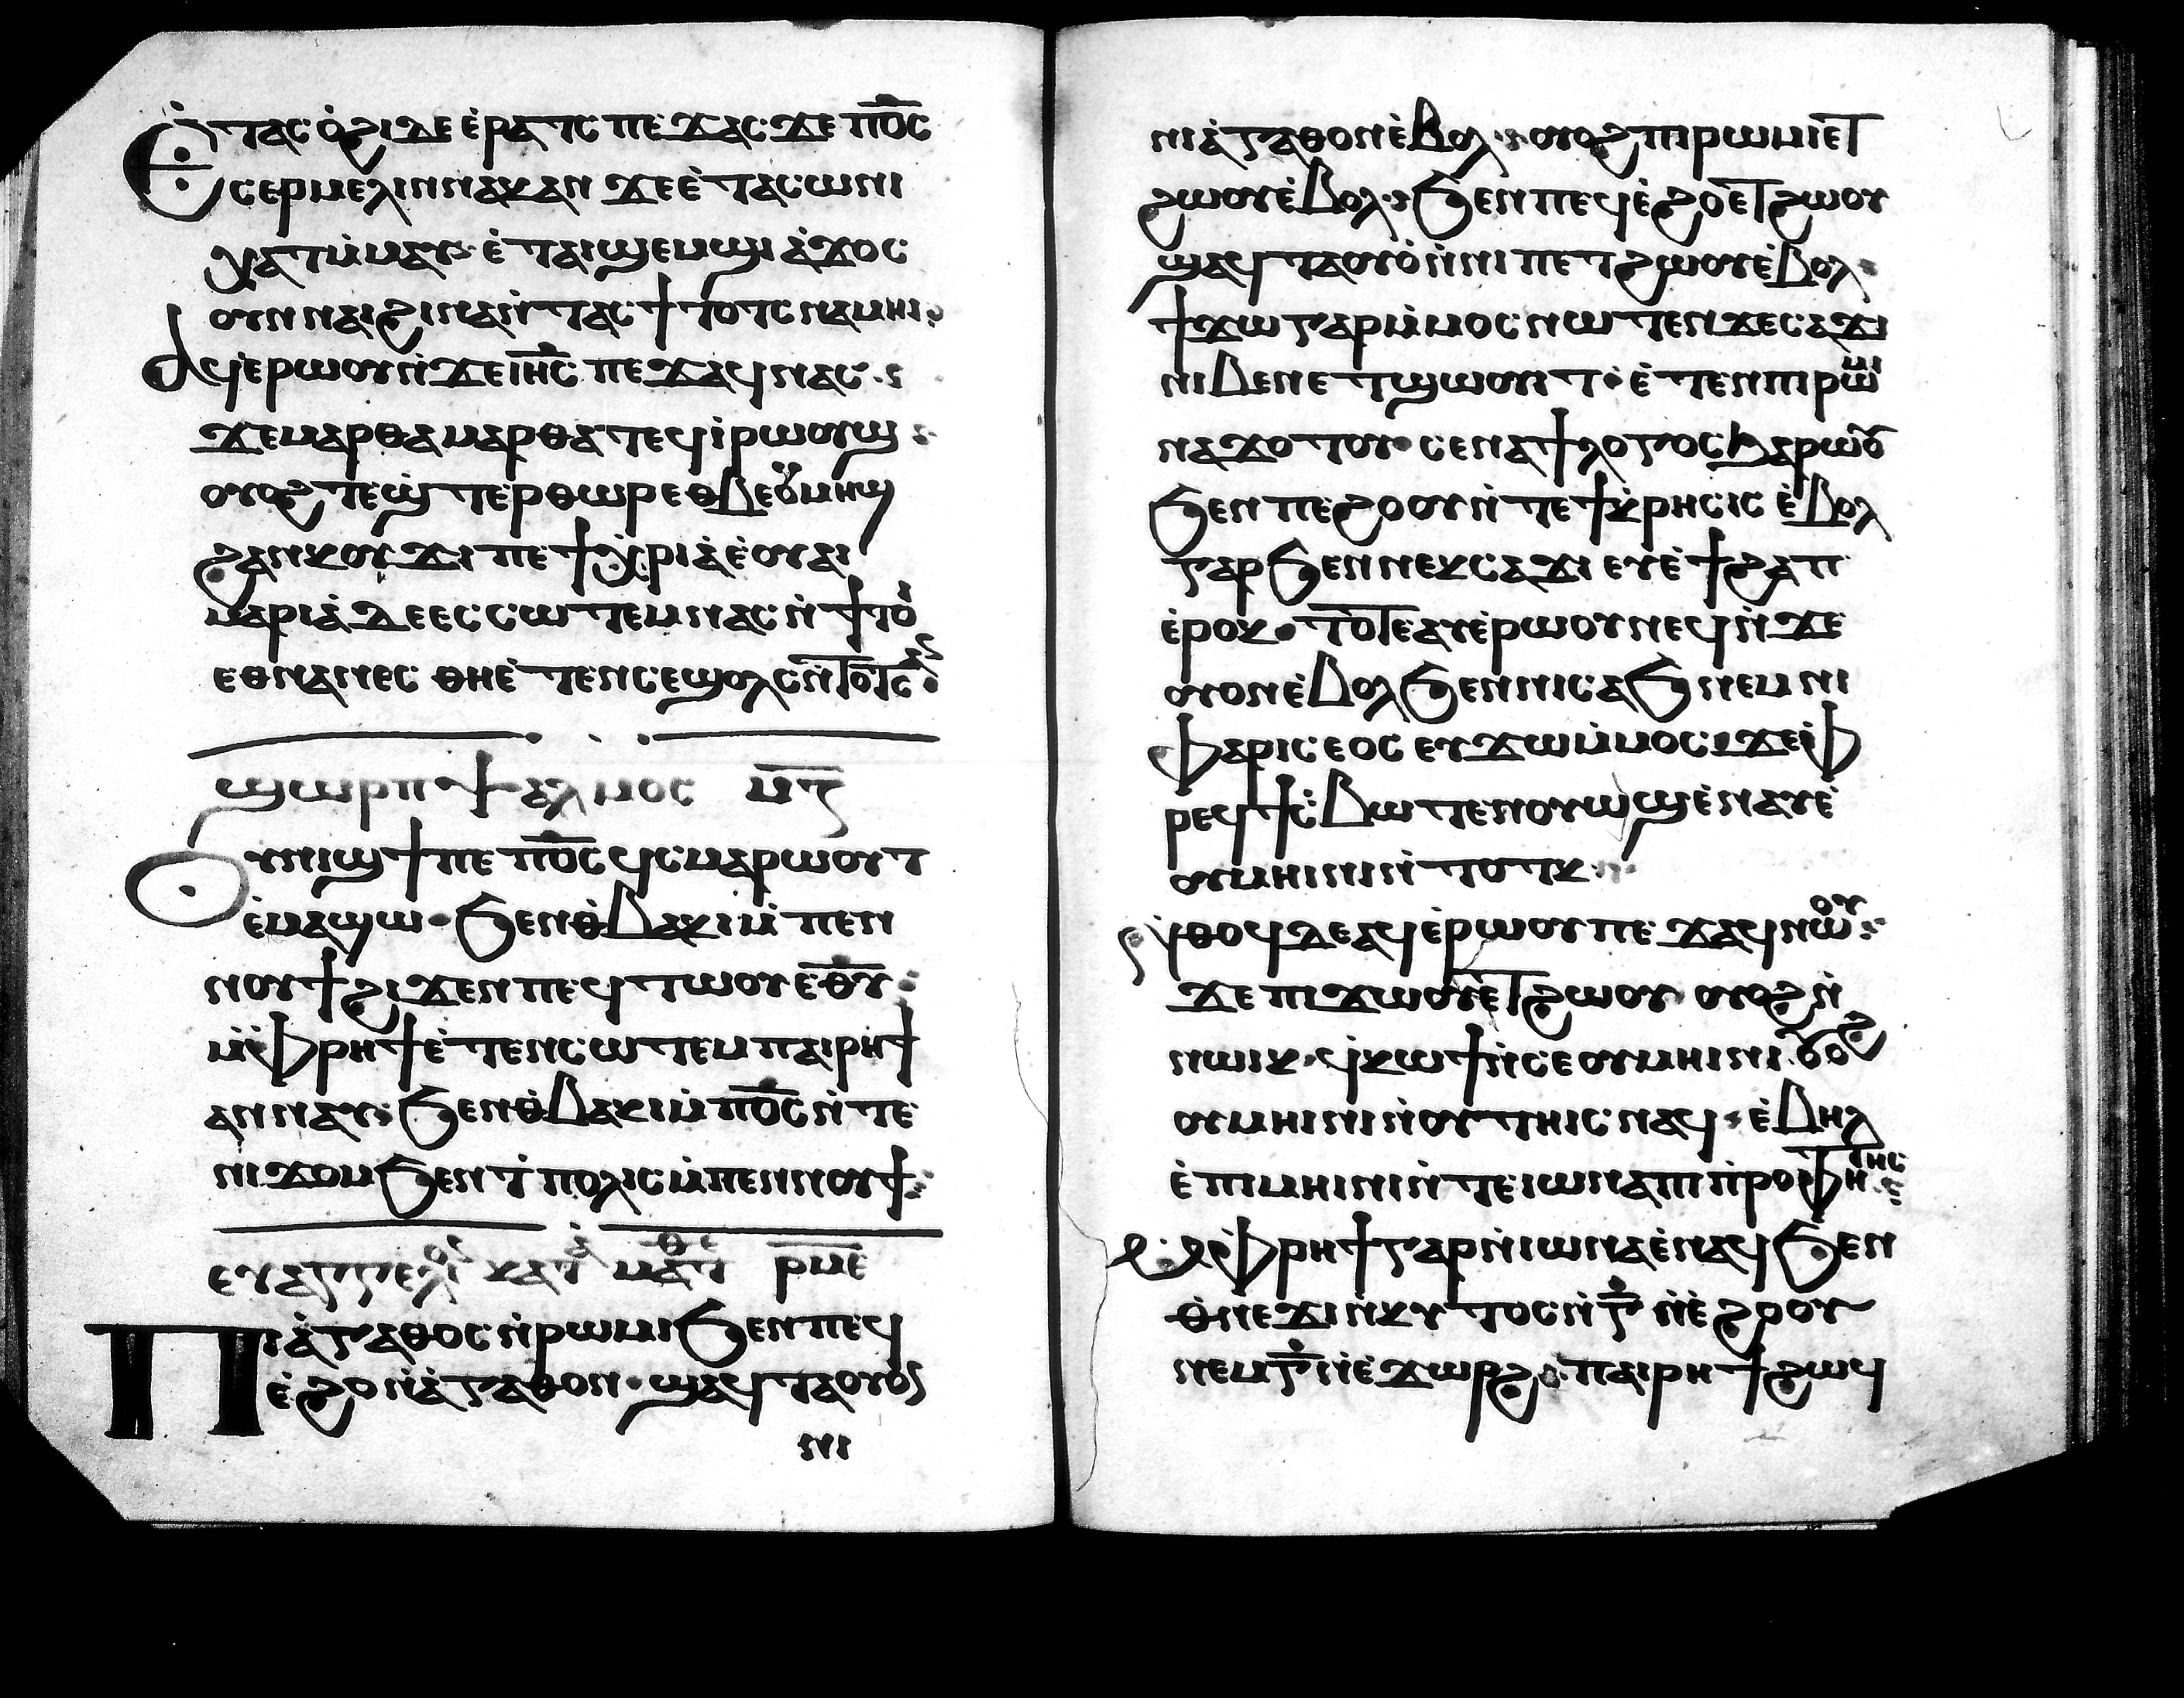 Ⲉ̇ⲧⲁⲥⲟ̇ϩⲓⲇⲉⲉ̇ⲣⲁⲧⲥ ⲡⲉϫⲁⲥϫⲉ ⲡ̅ⲟ̅ⲥ̅
ⲥⲉⲣⲙⲉⲗⲓⲛⲛⲁⲕⲁⲛ ϫⲉⲉ̇ⲧⲁⲥⲱⲛⲓ
ⲭⲁⲧⲙ̇ⲙⲁⲩ· ⲉ̇ⲧⲁⲓϣⲉⲙϣⲓ ⲁ̇ϫⲟⲥ
ⲟⲩⲛⲛⲁⲓϩⲓⲛⲁⲛ̇ⲧⲁⲥϯⲧⲟⲧⲥⲛⲁⲙⲏⲓ
ⲁϥⲉⲣⲱⲟⲩⲛ̇ϫⲉⲓ̅ⲏ̅ⲥ̅ ⲡⲉϫⲁϥⲛⲁⲥ
ϫⲉⲙⲁⲣⲑⲁⲙⲁⲣⲑⲁⲧⲉϥⲓⲣⲱⲟⲩϣ
ⲟⲩⲟϩⲧⲉϣⲧⲉⲣⲑⲱⲣⲉⲑⲃⲉⲟⲩⲙⲏϣ
ϩⲁⲛⲕⲟⲩϫⲓ ⲡⲉⲧⲭ̇ⲣⲓⲁ̇ⲉ̇ⲟⲩⲁⲓ
ⲙⲁⲣⲓⲁ̇ⲇⲉⲉⲥⲥⲱⲧⲉⲙⲛⲁⲥⲛ̇ϯⲧⲟ
ⲉⲑⲛⲁⲛⲉⲥ ⲑⲏⲉ̇ⲧⲉⲛⲥⲉϣⲟⲗⲥⲛ̇ⲧⲟⲧⲥ
ϣⲱⲣⲡ ⲯⲁⲗⲙⲟⲥ ⲙ̅ⲍ̅
Ⲟⲩⲛⲓϣϯⲡⲉ ⲡ̅ⲟ̅ⲥ̅ ϥⲥⲙⲁⲣⲱⲟⲩⲧ
ⲉ̇ⲙⲁϣⲱ· ϧⲉⲛⲑ̇ⲃⲁⲕⲓⲙ̇ⲡⲉⲛ
ⲛⲟⲩϯϩⲓϫⲉⲛⲡⲉϥⲧⲱⲟⲩⲉ̅ⲑ̅ⲩ̅
ⲙ̇ⲫ̇ⲣⲏϯⲉ̇ⲧⲉⲛⲥⲱⲧⲉⲙ ⲡⲁⲓⲣⲏϯ
ⲁⲛⲛⲁⲩ· ϧⲉⲛⲑ̇ⲃⲁⲕⲓⲙ̇ⲡ̅ⲟ̅ⲥ̅ⲛ̇ⲧⲉ
ⲛⲓϫⲟⲙϧⲉⲛⲧ̇ⲡⲟⲗⲓⲥⲙ̇ⲡⲉⲛⲛⲟⲩϯ
ⲉⲩⲁⲅⲅⲉⲗⲓⲟⲛ ⲕⲁⲧⲁ ⲙⲁⲧⲑⲉ ⲣ̅ⲙ̅ⲉ̅
Ⲡⲓⲁ̇ⲅⲁⲑⲟⲥⲛ̇ⲣⲱⲙⲓϧⲉⲛⲡⲉϥ
ⲉ̇ϩⲟⲛ̇ⲁ̇ⲅⲁⲑⲟⲛ· ϣⲁϥⲧⲁⲟⲩⲟ̇
ⲛⲓ
ⲛⲓⲁ̇ⲅⲁⲑⲟⲛⲉ̇ⲃⲟⲗ· ⲟⲩⲟϩⲡⲓⲣⲱⲙⲓⲉⲧ
ϩⲱⲟⲩⲉ̇ⲃⲟⲗ· ϧⲉⲛⲡⲉϥⲉ̇ϩⲟⲉⲧϩⲱⲟⲩ
ϣⲁϥⲧⲁⲟⲩⲟ̇ⲛ̇ⲛⲓⲡⲉⲧϩⲱⲟⲩⲉ̇ⲃⲟⲗ·
ϯϫⲱⲅⲁⲣⲙ̇ⲙⲟⲥⲛⲱⲧⲉⲛϫⲉⲥⲁϫⲓ
ⲛⲓⲃⲉⲛⲉⲧϣⲟⲩⲓⲧ· ⲉ̇ⲧⲉⲛⲓⲣⲱⲙⲓ
ⲛⲁϫⲟⲧⲟⲩ· ⲥⲉⲛⲁϯⲗⲟⲅⲟⲥϧⲁⲣⲱⲟⲩ
ϧⲉⲛⲡⲉϩⲟⲟⲩⲛ̇ⲧⲉϯⲕⲣⲏⲥⲓⲥ ⲉ̇ⲃⲟⲗ
ⲅⲁⲣϧⲉⲛⲛⲉⲕⲥⲁϫⲓ ⲉⲩⲉ̇ϯϩⲁⲡ
ⲉ̇ⲣⲟⲕ· ⲧⲟⲧⲉⲁⲩⲉⲣⲱⲟⲩⲛⲉϥⲛ̇ϫⲉ
ⲟⲩⲟⲛⲉ̇ⲃⲟⲗϧⲉⲛⲛⲓⲥⲁϧⲛⲉⲙⲛⲓ
ⲫⲁⲣⲓⲥⲉⲟⲥ ⲉⲩϫⲱⲙ̇ⲙⲟⲥ· ϫⲉⲫ
ⲣⲉϥϯⲥ̇ⲃⲱⲧⲉⲛⲟⲩⲱϣⲉ̇ⲛⲁⲩⲉ̇
ⲟⲩⲙⲏⲓⲛⲓⲛ̇ⲧⲟⲧⲕ·
ⲛ̇ⲑⲟϥⲇⲉⲁϥⲉ̇ⲣⲱⲟⲩⲡⲉϫⲁϥⲛⲱⲟⲩ·
ϫⲉ ⲡⲓϫⲱⲟⲩⲉⲧϩⲱⲟⲩ ⲟⲩⲟϩⲛ̇
ⲛⲱⲓⲕ· ϥⲕⲱϯⲛ̇ⲥⲉⲟⲩⲙⲏⲓⲛⲓ ⲟⲩⲟϩ
ⲟⲩⲙⲏⲓⲛⲓⲛ̇ⲟⲩⲧⲏⲓⲥⲛⲁϥ· ⲉ̇ⲃⲏⲗ
ⲉ̇ⲡⲓⲙⲏⲓⲛⲓⲛ̇ⲧⲉⲓⲱⲛⲁⲡⲓⲡ̇ⲣⲟⲫⲏⲧⲏⲥ
ⲙ̇ⲫ̇ⲣⲏϯⲅⲁⲣⲛ̇ⲓⲱⲛⲁⲉ̇ⲛⲁϥϧⲉⲛ
ⲑ̇ⲛⲉϫⲓⲛⲕⲩⲧⲟⲥⲛ̇ⲅ̅ ⲛ̇ⲉ̇ϩⲟⲟⲩ
ⲛⲉⲙⲅ̅ⲛ̇ⲉ̇ϫⲱⲣϩ· ⲡⲁⲓⲣⲏϯϩⲱϥ